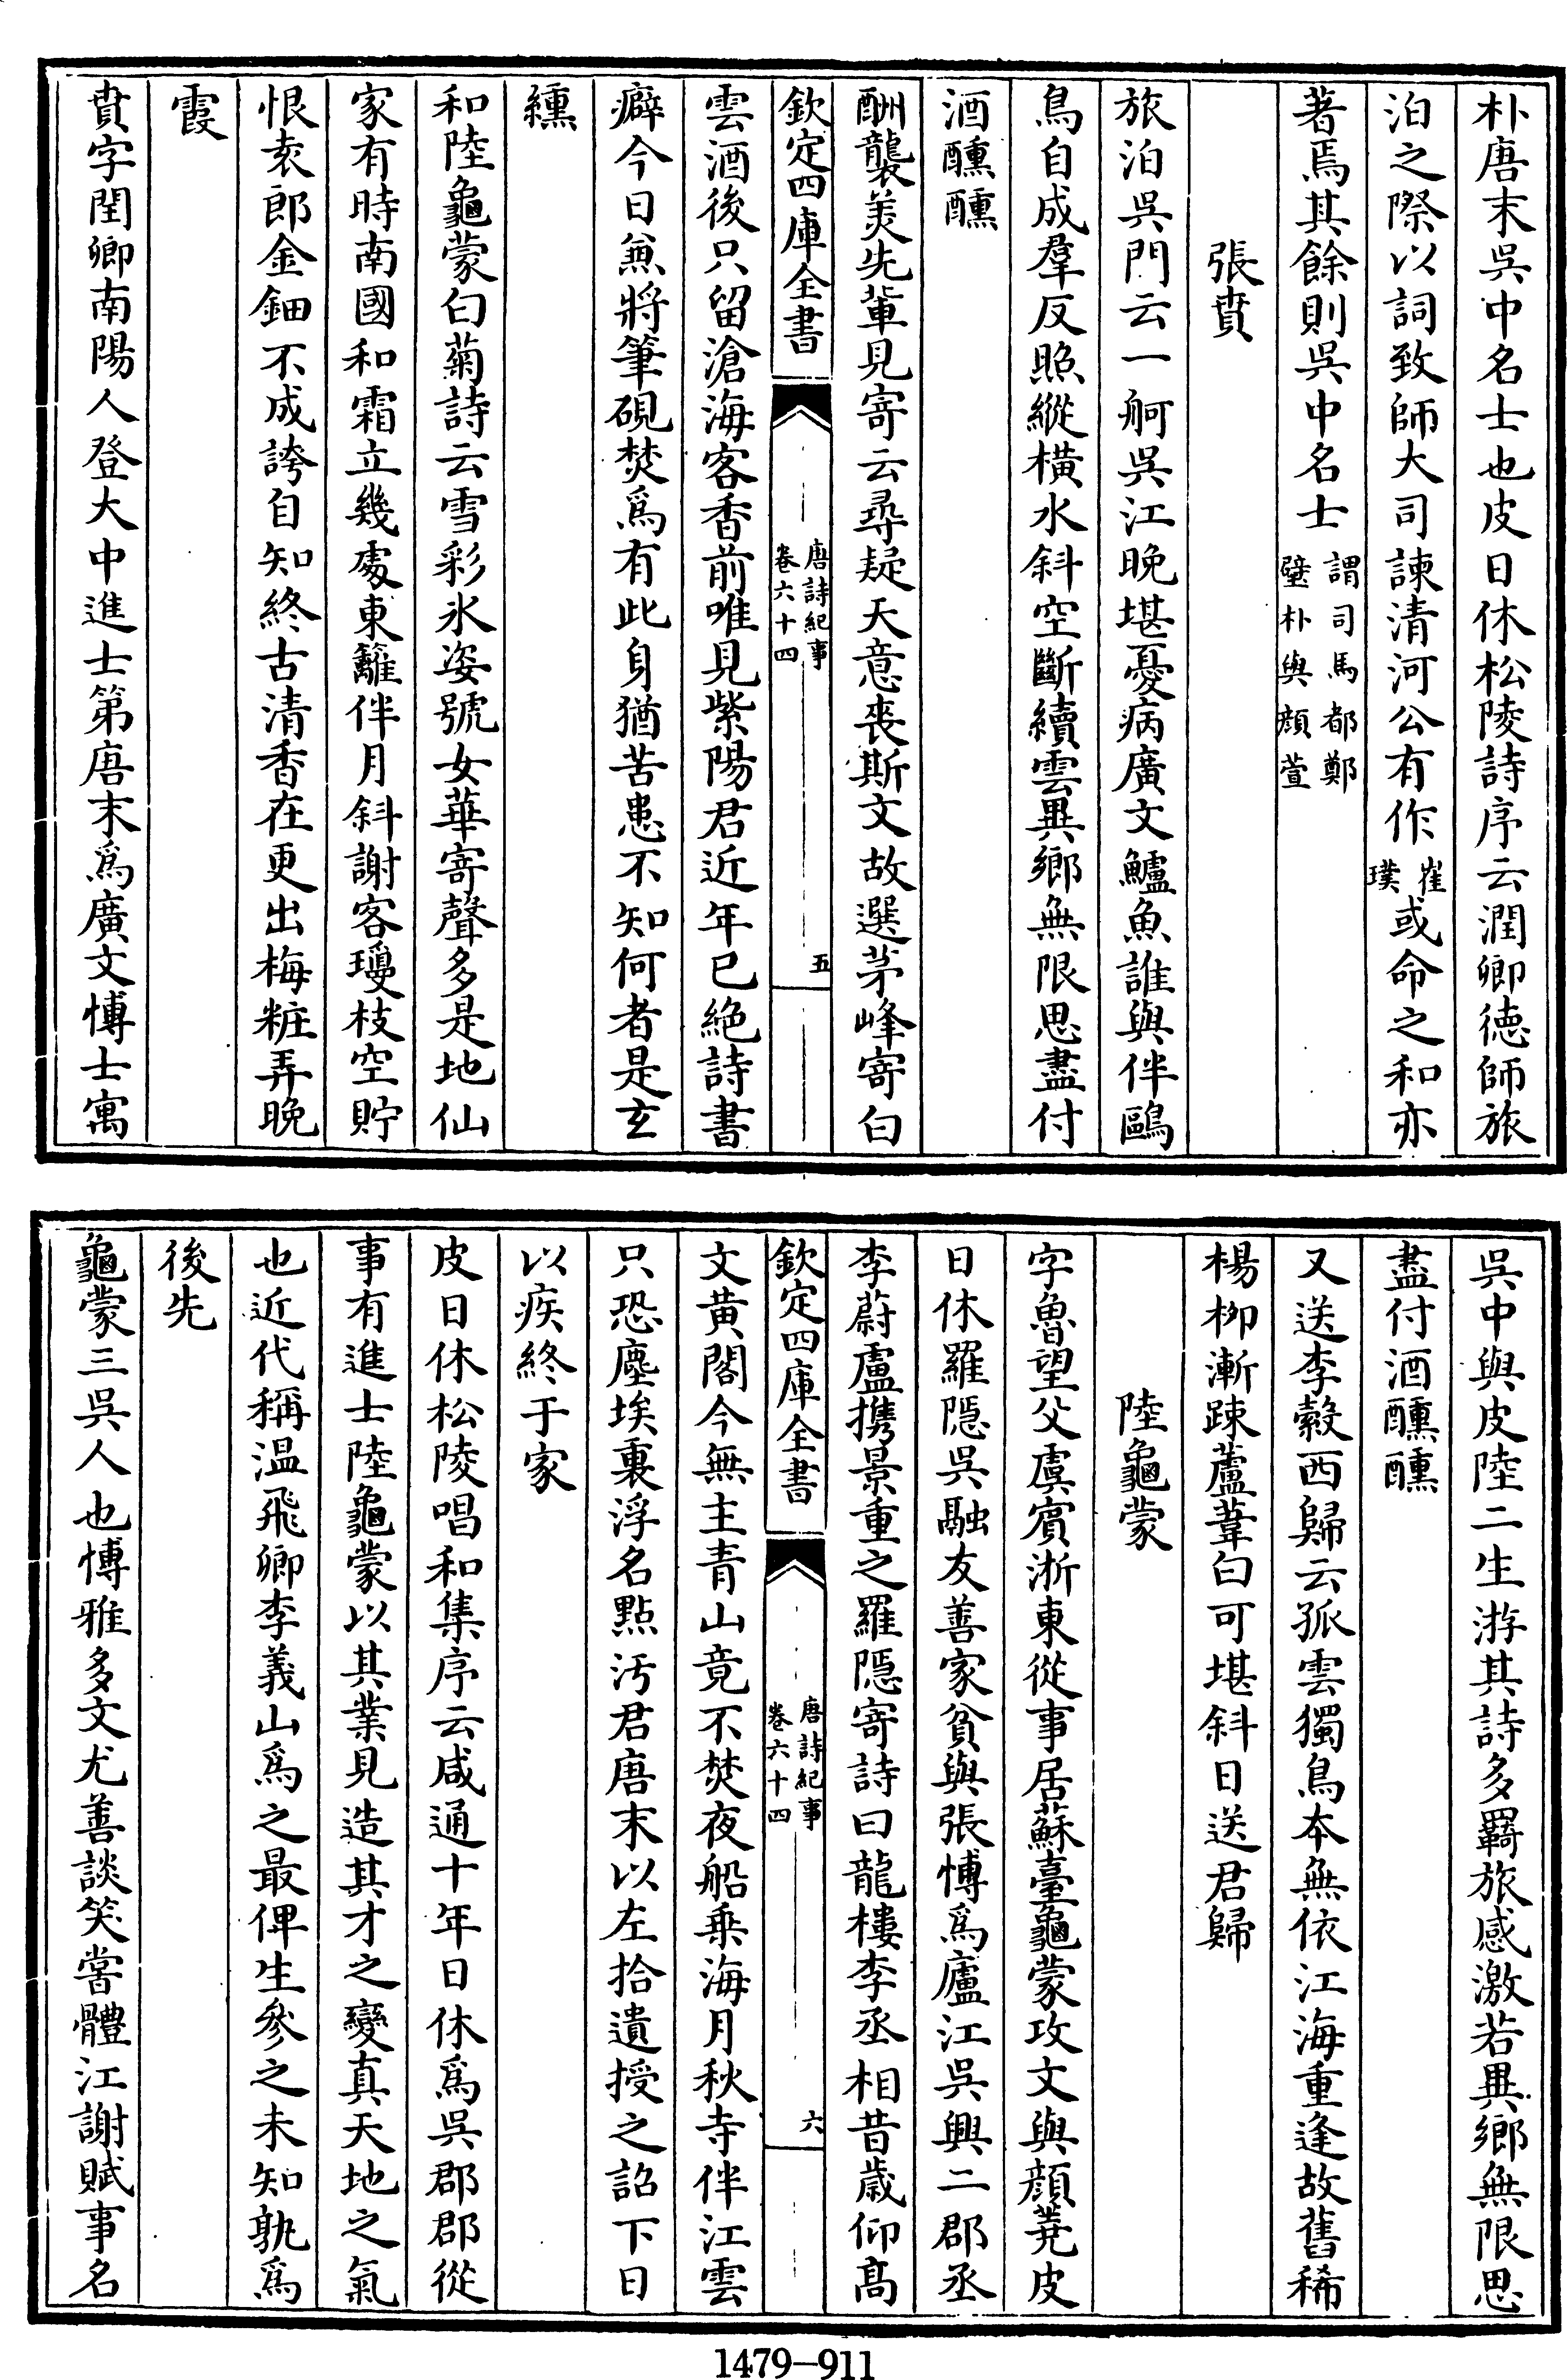 朴唐末吳中名士也皮日休松陵詩序云潤卿徳師旅
泊之際以詞致師大司諫清河公有作崔璞或命之和亦
著焉其餘則吳中名士謂司馬都鄭璧朴與顔萱
張賁
旅泊吳門云一舸吳江晚堪憂病廣文鱸魚誰與伴鷗
鳥自成羣反照縱橫水斜空斷續雲異鄉無限思盡付
酒醺醺
酬襲美先軰見寄云尋疑天意喪斯文故選茅峰寄白
欽定四庫全書
唐詩紀事
卷六十四
五
雲酒後只留滄海客香前唯見紫陽君近年已絶詩書
癖今日兼將筆硯焚爲有此身猶苦患不知何者是玄
纁
和陸龜蒙白菊詩云雪彩氷姿號女華寄聲多是地仙
家有時南國和霜立幾處東籬伴月斜謝客瓊枝空貯
恨袁郎金鈿不成誇自知終古清香在更出梅粧弄晚
霞
賁字閏卿南陽人登大中進士第唐末爲廣文博士寓
吳中與皮陸二生游其詩多羇旅感激若異鄉無限思
盡付酒醺醺
又送李縠西歸云孤雲獨鳥本無依江海重逢故舊稀
楊柳漸踈蘆葦白可堪斜日送君歸
陸龜蒙
字魯望父虞賓浙東從事居蘇臺龜蒙攻文與顔蕘皮
日休羅隱吳融友善家貧與張博爲廬江吳興二郡丞
李蔚盧攜景重之羅隱寄詩曰龍樓李丞相昔歲仰高
欽定四庫全書
唐詩紀事
卷六十四
六
文黄閣今無主青山竟不焚夜船乗海月秋寺伴江雲
只恐塵埃裏浮名點汚君唐末以左拾遺授之詔下日
以疾終于家
皮日休松陵唱和集序云咸通十年日休爲吳郡郡從
事有進士陸龜蒙以其業見造其才之變真天地之氣
也近代稱温飛卿李義山爲之最俾生參之未知孰爲
後先
龜蒙三吳人也博雅多文尤善談笑嘗體江謝賦事名
1479-911